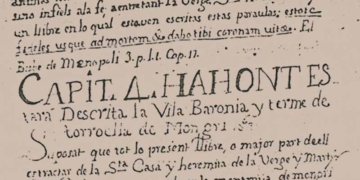 uno infels ala fe aentretant la Verge
un llibre en lo qual estaven escritas estas paraulas; esto fi
delis usque ad mortem & dabo tibi coronam vitæ. El
Bisbe de Mænopoli 3. p. l. 1. Cap. 17.
CAPIT. 4. HAHONT ES
tara Descrita la Vila Baronia y terme de
Torroella de Mongri
Suposat que tot lo present llibre, o major part dell
es tractar de la Sta. Casa y heremita de la Verge y Martyr